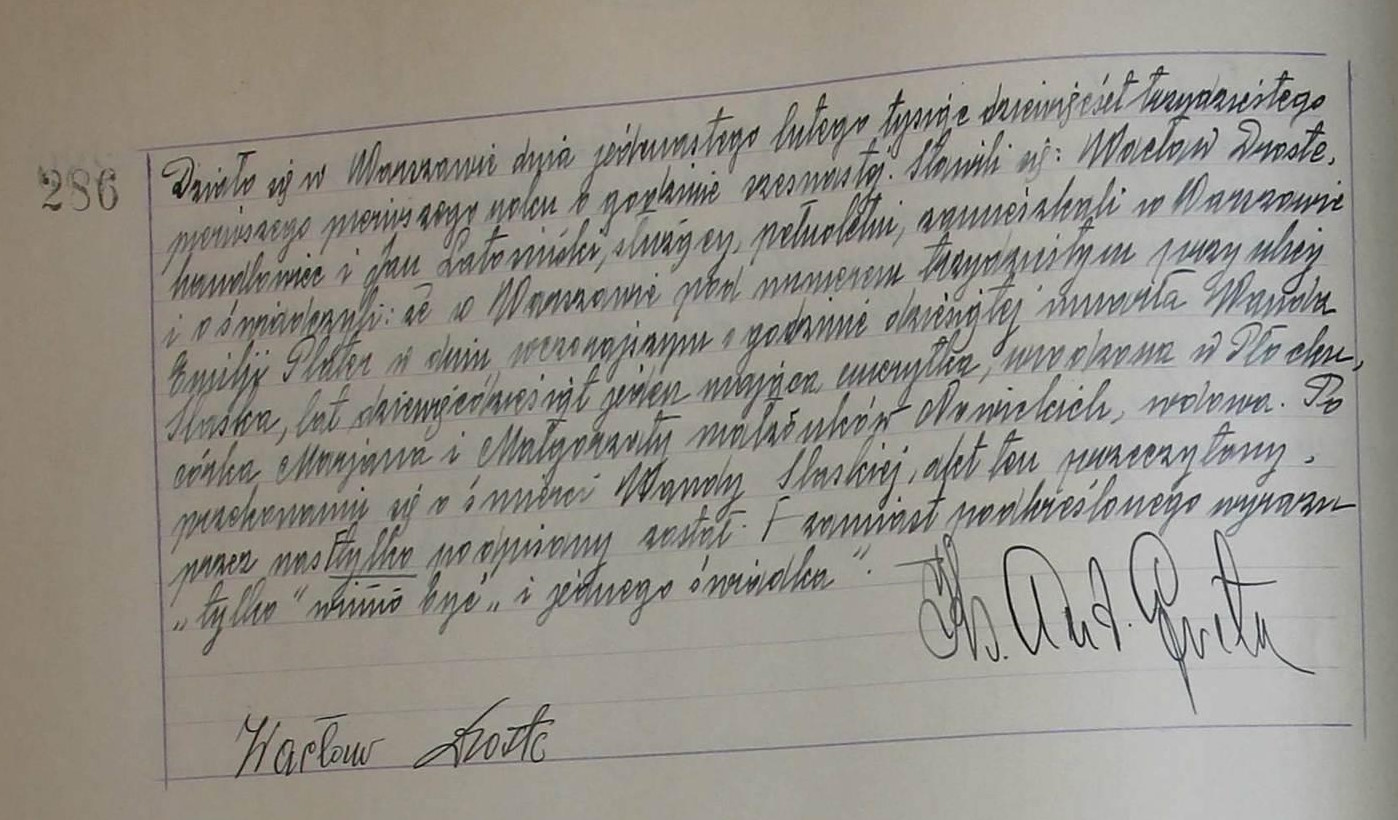 286
Działo się w Warszawie dnia jedenastego lutego tysiąc dziewięćset trzydziestego
pierwszego roku o godzinie szesnastej. Stawili się: Wacław Droste,
handlowiec i Jan służący, pełnoletni, zamieszkali w Warszawie
i oświadczyli: że w Warszawie pod numerem trzydziestym przy ulicy
Emilji Plater w dniu wczorajszym o godzinie dziesiątej umarła Wanda
Slaska, lat dziewięćdziesiąt jeden mająca emerytka, urodzona w Płocku,
córka Marjana i Małgorzaty małżonków Nowickich, wdowa. Po
przekonaniu się o śmierci Wandy Slaskiej, akt ten przeczytany,
przez nas tylko podpisany został. zamiast podkreślonego wyrazu
„tylko" winno być „i jednego świadka".
Ks. Ant.
Wacław Droste